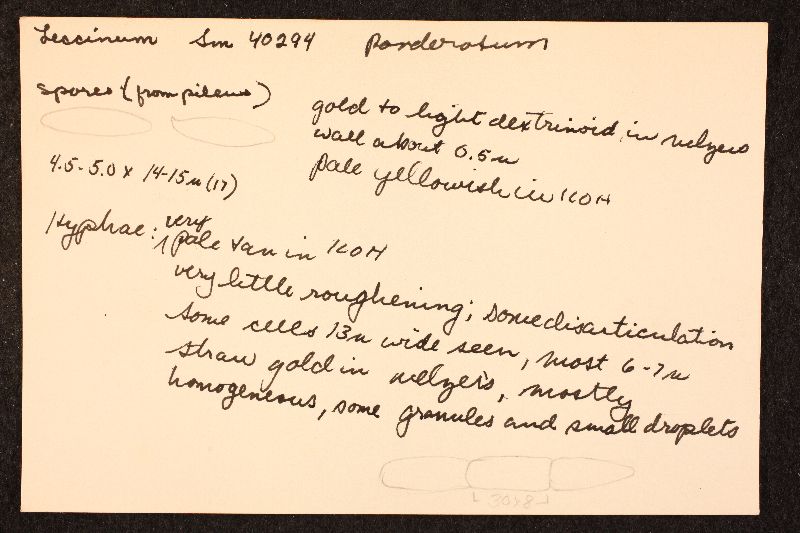 Leccinum Sm 40294 ponderosum
spores (from pileus)
gold to light dextrinoid in melzers
wall about 0.5 u
pale yellowish in KOH
4.5-5.0 x 14-15 u (17)
Hyphae: very pale tan in KOH
very little roughening; some disarticulation
some cells 13u wide seen, most 6-7 u
straw gold in melzer's, mostly
homogeneous, some granules and small droplets
30x8